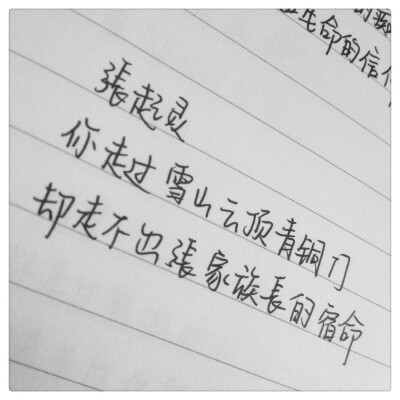 生命的信
張起灵
你走过雪山云顶青铜门
却走不出張家族長的宿命